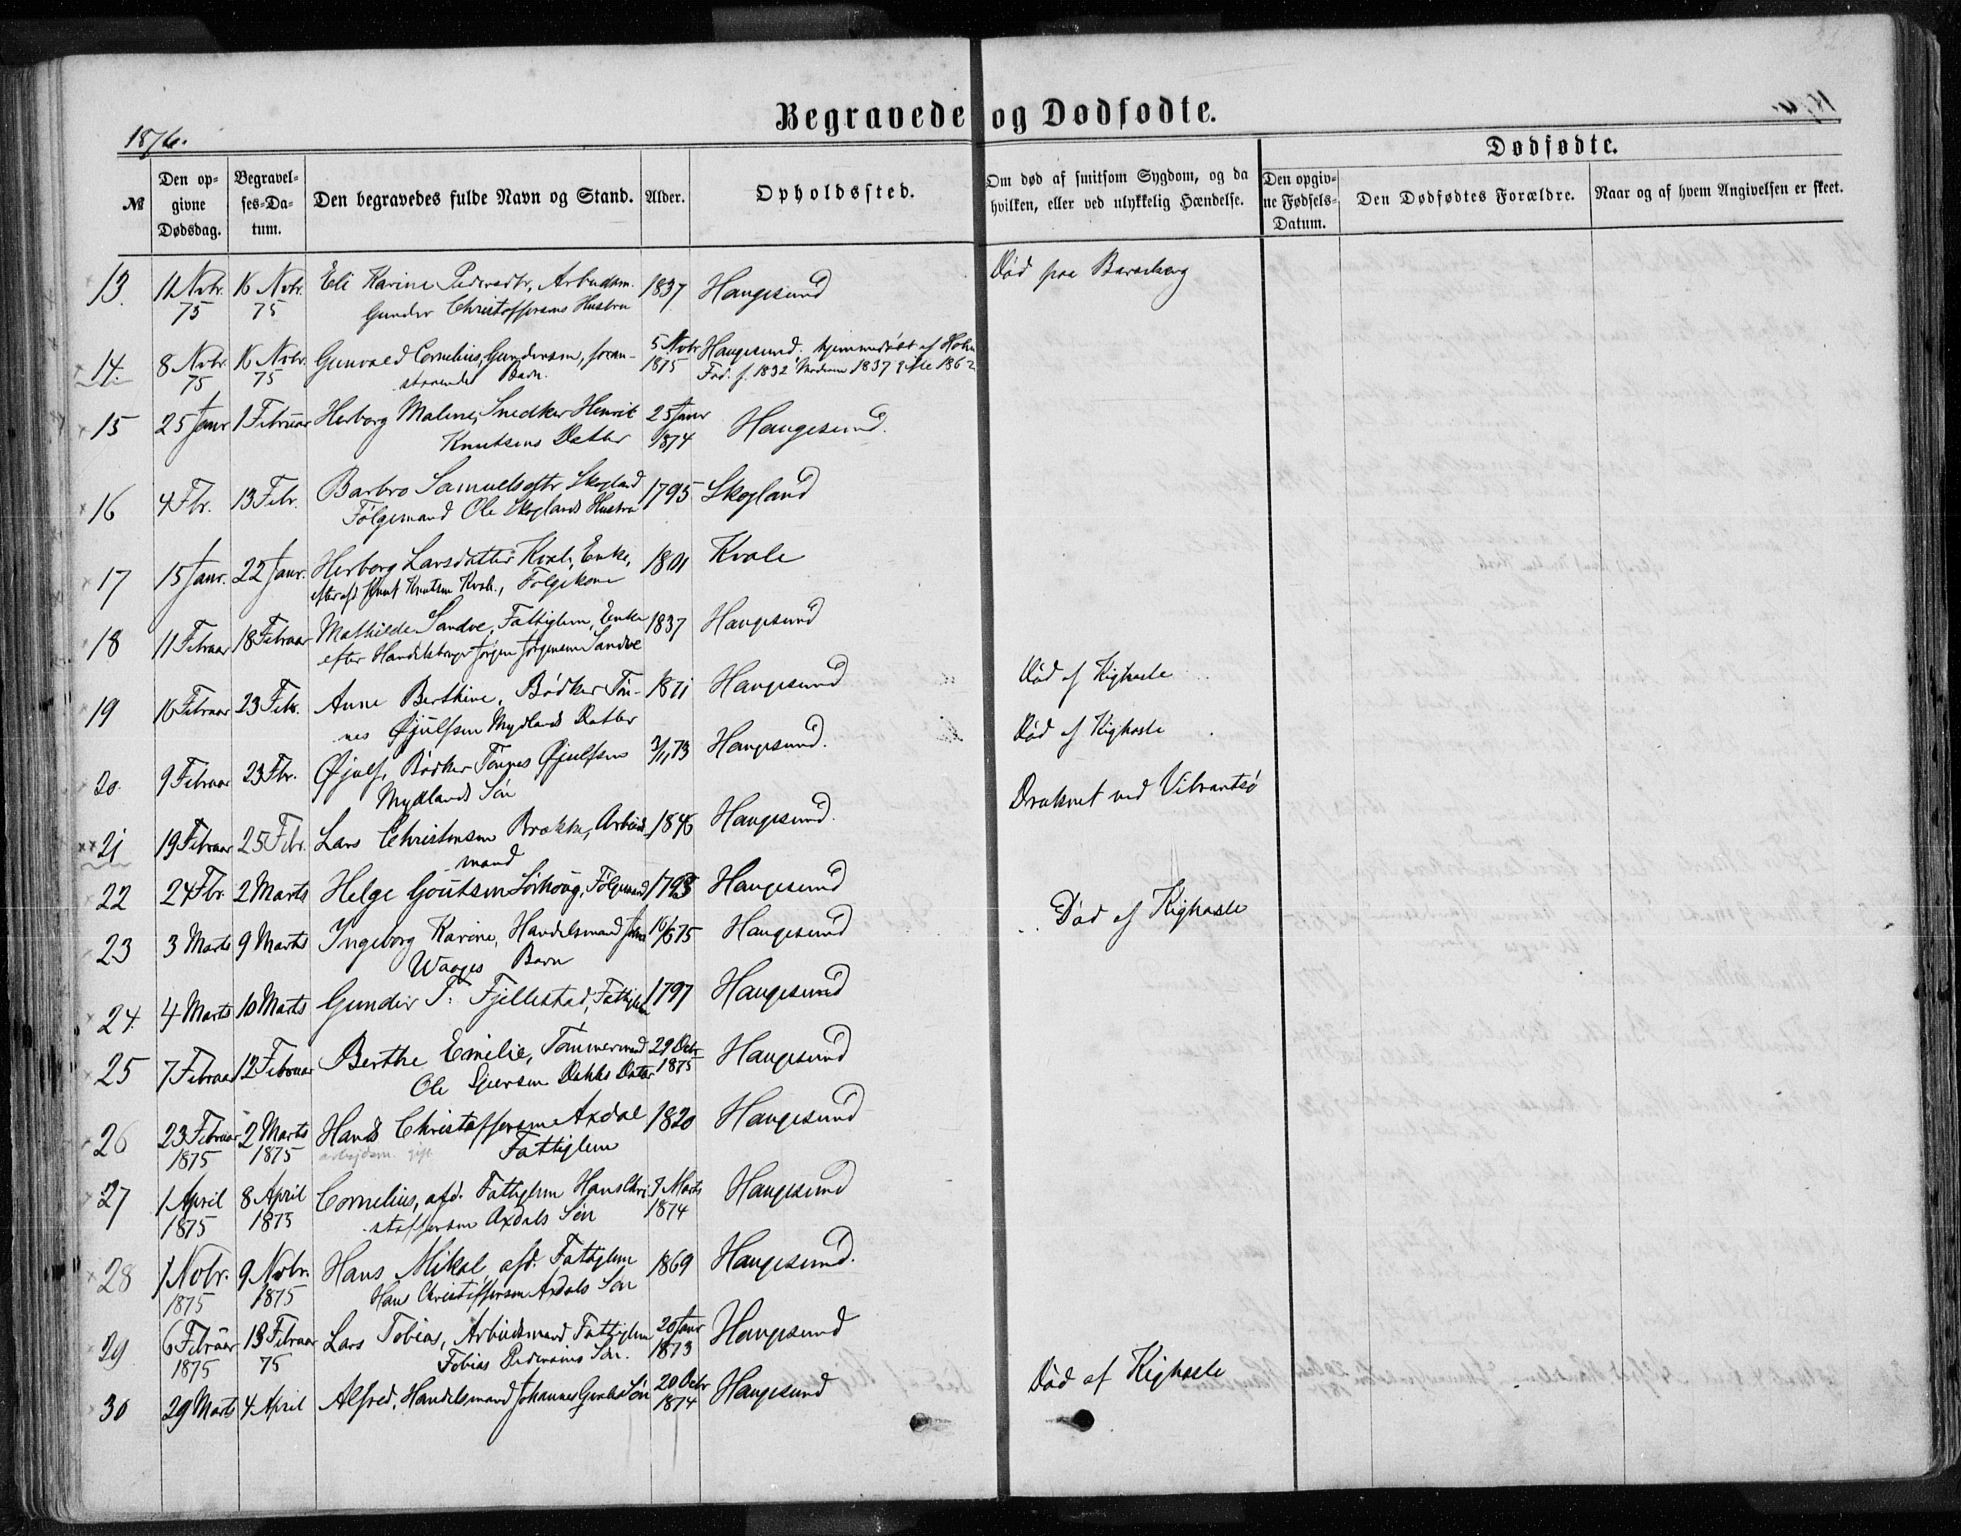 1876.
Begravede og Dødfødte.
Dødfødte.
№
Den opgivne Dødsdag.
Begravelses-Datum.
Den begravedes fulde Navn og Stand.
Alder.
Opholdssted.
Om død af smitsom Sygdom, og da hvilken, eller ved ulykkelig Hændelse.
Den opgivne Fødsels-Datum.
Den Dødfødtes Forældre.
Naar og af hvem Angivelsen er skeet.
13. 11 Novbr. 16 Novbr. Eli Karine Pedersdtr, Arbeidsm. 1837 Haugesund Død paa Barselseng
75 75 Gunder Christoffersens Hustru
14. 8 Novbr. 16 Novbr. Gunvald Cornelius Gundersen, foran- 5 Novbr Haugesund, hjemmedøbt af
75 75 staaendes Barn. 1875 Fad. f. 1832 Moderen 1837 gifte 1862
15 25 Janr 1 Februar Herborg Maline, Snedker Henrik 25 Janr Haugesund.
Knutsens Datter 1874
16 4 Fbr. 13 Febr. Barbro Samuelsdtr Skogland 1795 Skogland
Følgemand Ole Skoglands Hustru
17 15 Janr. 22 Janr. Herborg Larsdatter Kvale, Enke, 1801 Kvale
efter afd Knut Knutsen Kvale, Følgekone
18 11 Februar 18 Februar Mathilde Sandve, Fattiglem, Enke 1837 Haugesund
efter Handelsborger Jørgen Jørgensen Sandve
19 16 Februar 23 Febr. Anne Berthine, Bødker Tøn- 1871 Haugesund Død af Kighoste
nes Øjulfsen Mydlands Datter
20. 9 Februar 23 Fbr. Øjulf, Bødker Tønnes Øjulfsen 3/11 73 Haugesund. Død af Kighoste
Mydlands Søn
21 19 Februar 25 Febr. Lars Christensen Brække, Arbeids- 1846 Haugesund. Druknet ved Vibrantsø
mand
22 24 Fbr 2 Marts Helge Goutsen Sørhoug, Følgemand 1793 Haugesund
23 3 Marts 9 Marts Ingeborg Karine, Handelsmand 16/6 75 Haugesund Død af Kighoste
Waages Barn
24. 4 Marts 10 Marts Gunder T. Fjellestad, Fattiglem 1797 Haugesund
25 7 Februar 12 Februar Berthe Emilie, Tømmermand 29 Octr Haugesund
Ole Datter 1875
26 23 Februar 2 Marts Hans Christoffersen Axdal 1820 Haugesund
1875 1875 arbejdsm. gift Fattiglem
27 1 April 8 April Cornelius, afd. Fattiglem Hans Chri- 7 Marts Haugesund
1875 1875 stoffersen Axdals Søn 1874
28 1 Novbr. 9 Novbr. Hans Mikal, afd. Fattiglem 1869 Haugesund.
1875 1875 Hans Christoffersen Axdals Søn
29 6 Februar 13 Februar Lars Tobias, Arbeidsmand Fattiglem 20 Janr Haugesund
1875 75 Tobias Pedersens Søn. 1873
30 29 Marts 4 April Alfred, Handelsmand Johannes Søn 20 Octr Haugesund Død af Kighoste
1874